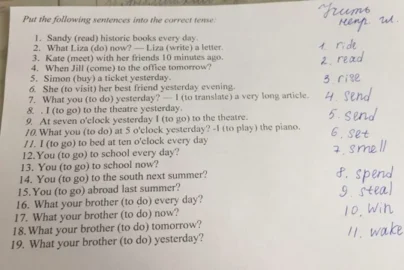 Put the following sentences into the correct tense:
1. Sandy (read) historic books every day.
2. What Liza (do) now? — Liza (write) a letter.
3. Kate (meet) with her friends 10 minutes ago.
4. When Jill (come) to the office tomorrow?
5. Simon (buy) a ticket yesterday.
6. She (to visit) her best friend yesterday evening.
7. What you (to do) yesterday? — I (to translate) a very long article.
8. . I (to go) to the theatre yesterday.
9. At seven o'clock yesterday I (to go) to the theatre.
10. What you (to do) at 5 o'clock yesterday? -I (to play) the piano.
11. I (to go) to bed at ten o'clock every day
12. You (to go) to school every day?
13. You (to go) to school now?
14. You (to go) to the south next summer?
15. You (to go) abroad last summer?
16. What your brother (to do) every day?
17. What your brother (to do) now?
18. What your brother (to do) tomorrow?
19. What your brother (to do) yesterday?
неир. гл.
1. ride
2. read
3. rise
4. send
5. send
6. set
7. smell
8. spend
9. steal
10. win
11. wake